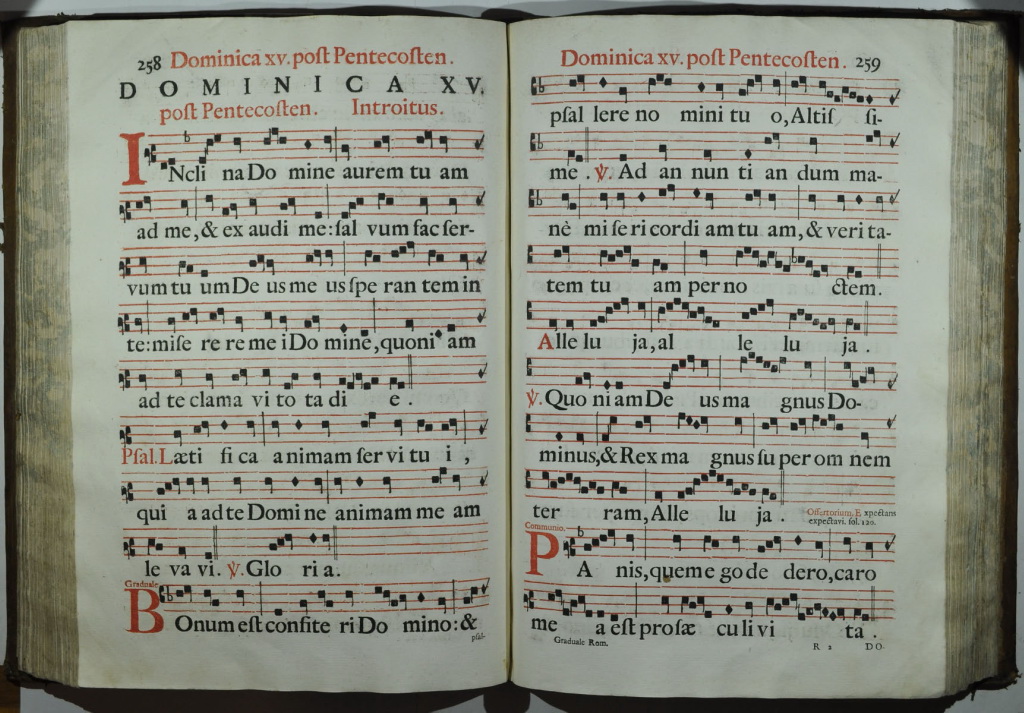 258 Dominica xv. poſt Pentecoſten.
DOMINICA XV.
poſt Pentecoſten. Introitus.
INcli na Do mine aurem tu am
ad me, & ex audi me: ſal vum fac ſer-
vum tu um De us me us ſpe ran tem in
te: miſe re re me i Do mine, quoni am
ad te clama vi to ta di e.
Pſal. Læti fi ca animam ſer vi tu i,
qui a ad te Domi ne animam me am
le va vi. ℣. Glo ri a.
Graduale
BOnum eſt confite ri Do mino: &
pſal-
Dominica xv. poſt Pentecoſten. 259
pſal lere no mini tu o, Altiſ ſi-
me. ℣. Ad an nun ti an dum ma-
nè mi ſe ri cordi am tu am, & veri ta-
tem tu am per no ctem.
Alle lu ja, al le lu ja.
℣. Quo ni am De us ma gnus Do-
minus, & Rex ma gnus ſu per om nem
ter ram, Alle lu ja. Offertorium, Expectans
expectavi. fol. 120.
Communio.
PA nis, quem e go de dero, caro
me a eſt pro ſæ cu li vi ta.
Graduale Rom. R 2 DO-